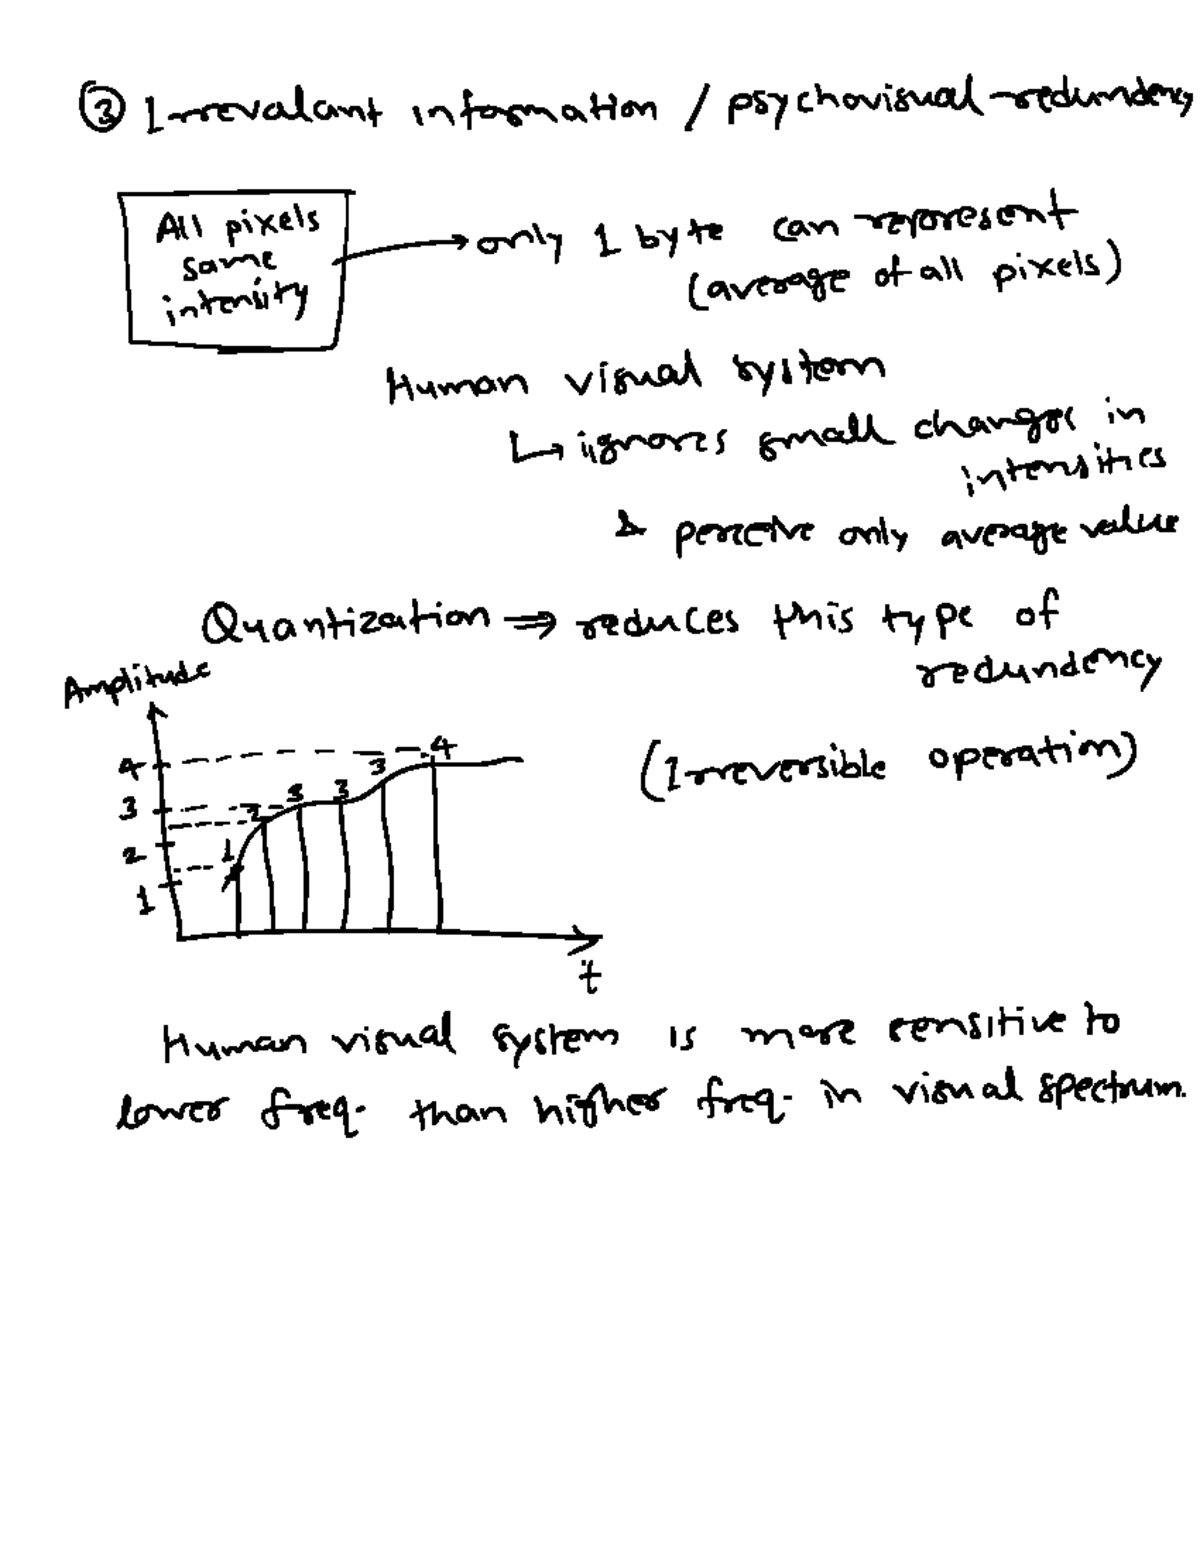 ③ Irrevalant information / psychovisual redundency
All pixels
same
intensity
only 1 byte can represent
(average of all pixels)
Human visual system
↳ ignores small changes in
intensities
& perceive only average value
Quantization ⇒ reduces this type of
redundency
Amplitude
(Irreversible operation)
4
3
2
1
1 2 3 3 3 4
t
Human visual system is more sensitive to
lower freq. than higher freq. in visual spectrum.